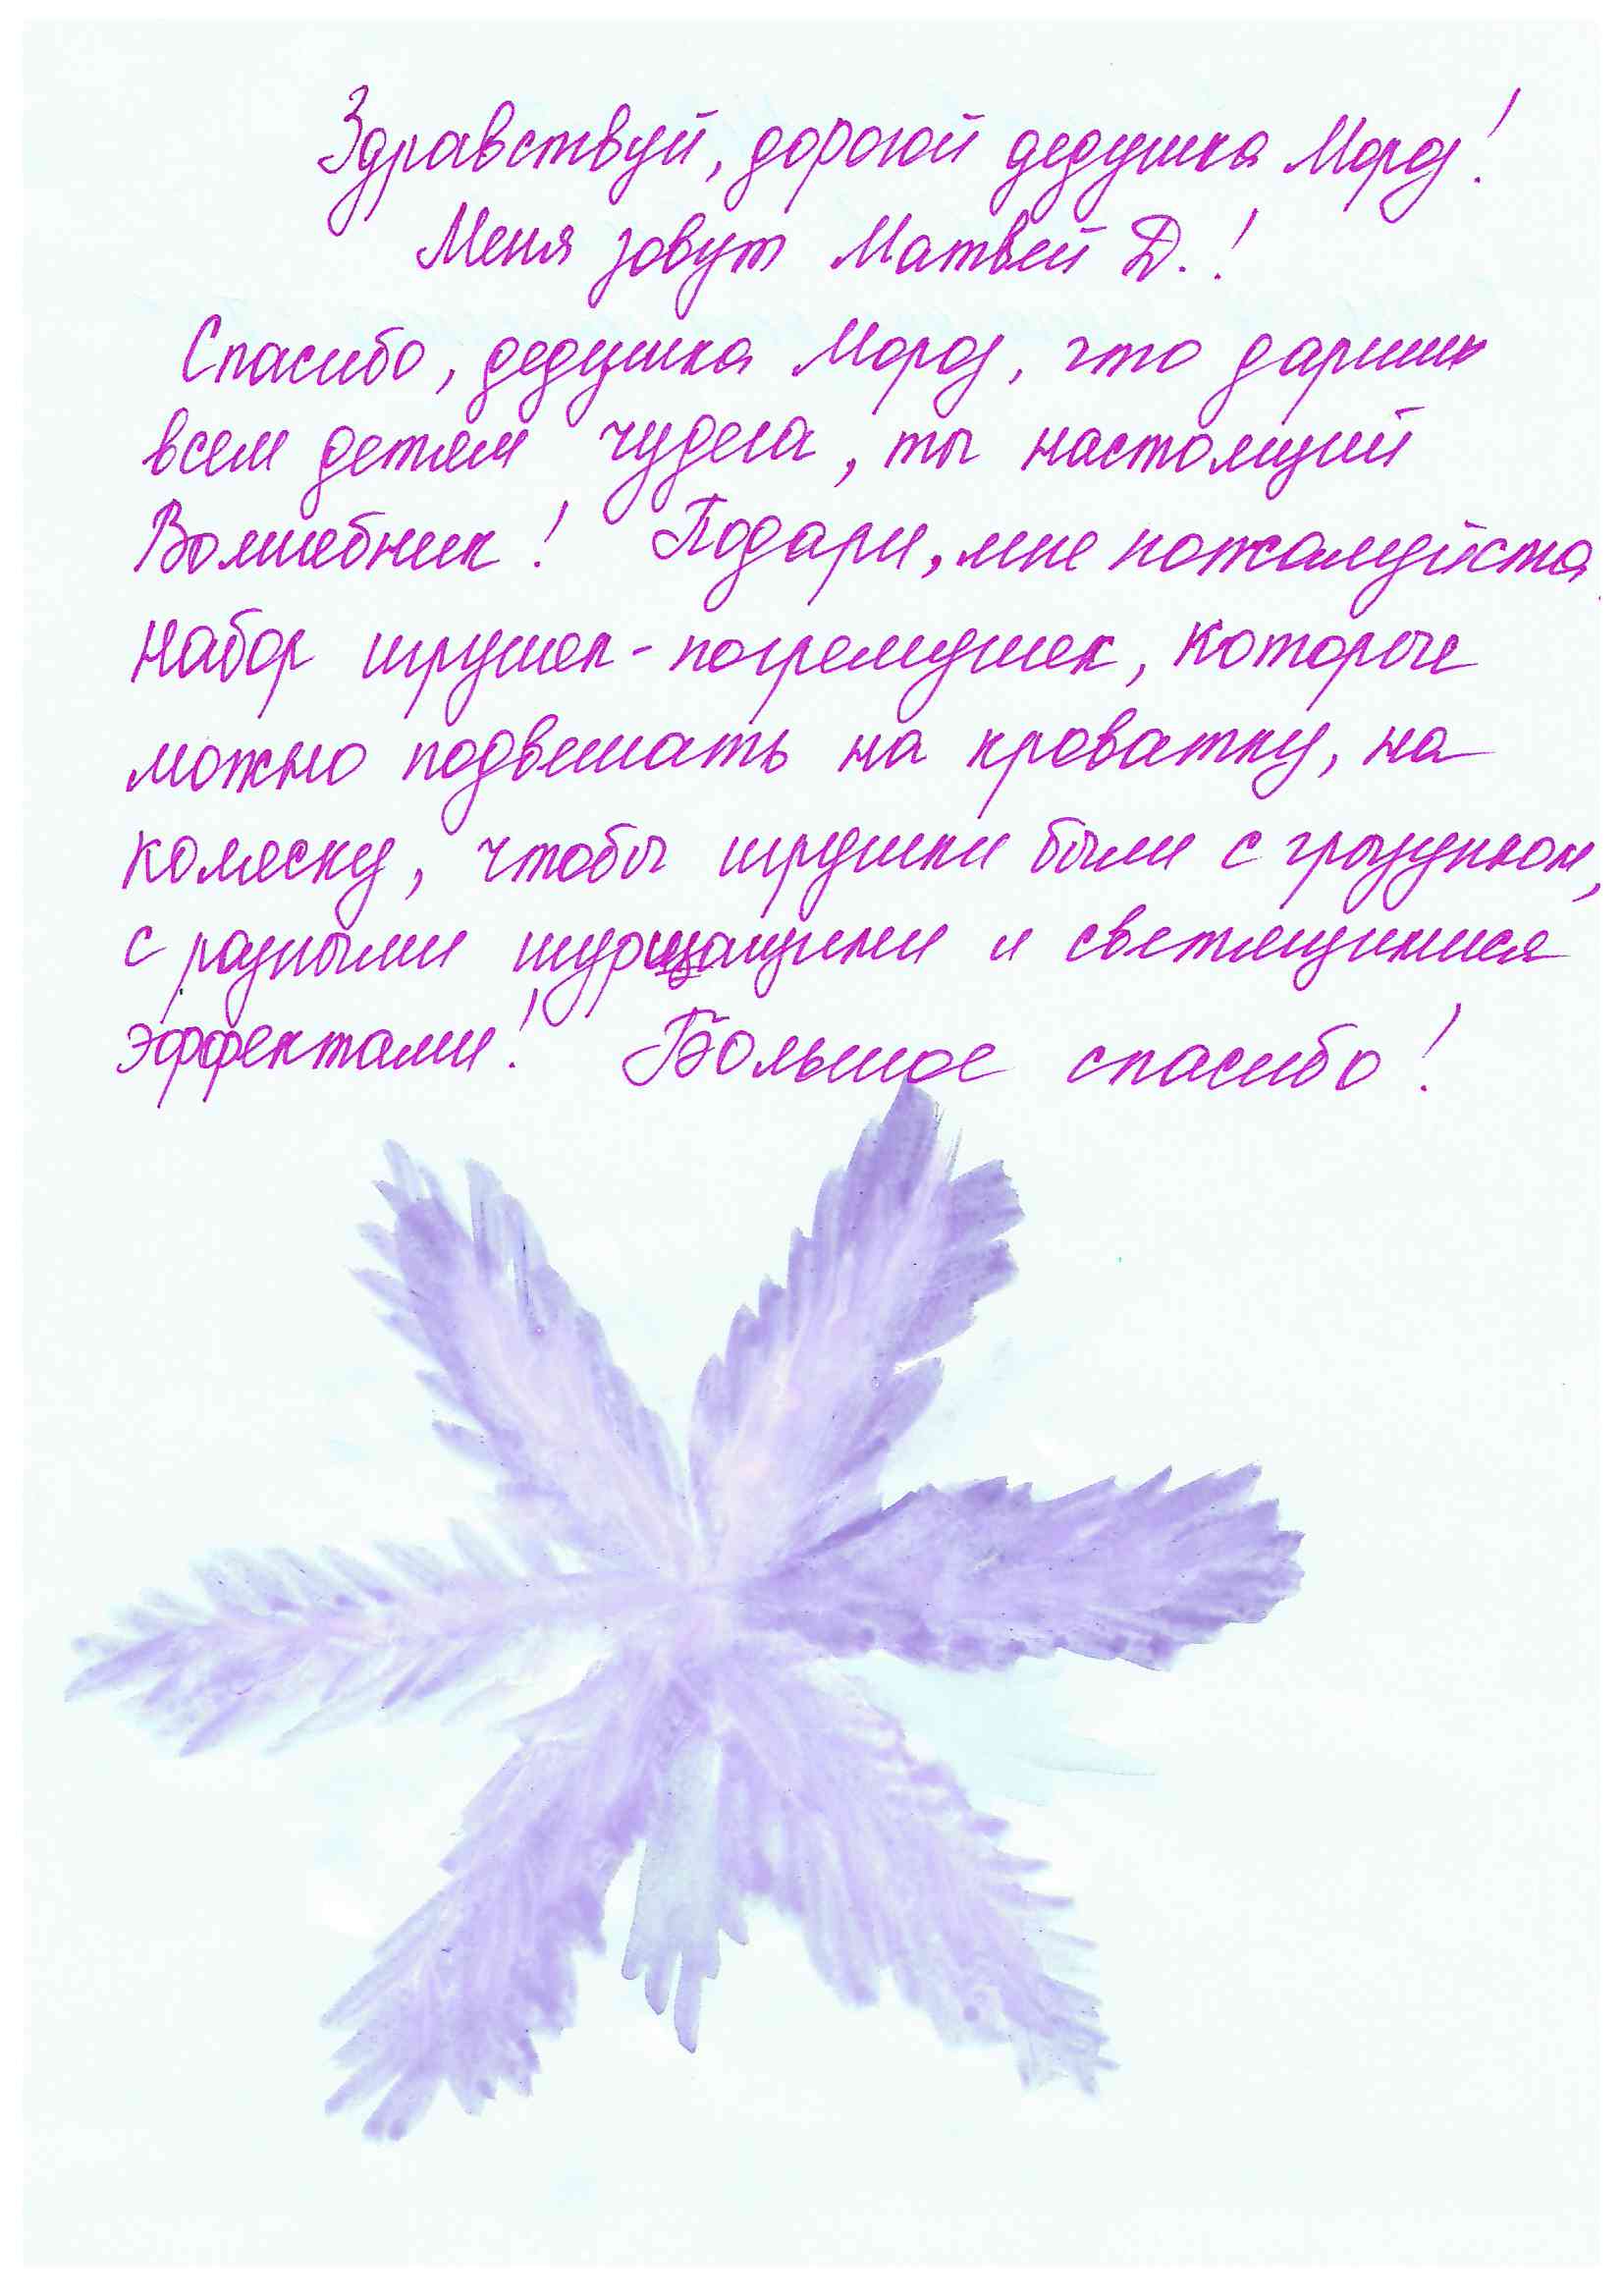 Здравствуй, дорогой дедушка Мороз!
Меня зовут Матвей Д.!
Спасибо, дедушка Мороз, что даришь
всем детям чудеса, ты настоящий
Волшебник! Подари, мне пожалуйста
набор игрушек-погремушек, которые
можно подвешать на кроватку, на
коляску, чтобы игрушки были с грызунком,
с разными и светящимися
эффектами! Большое спасибо!